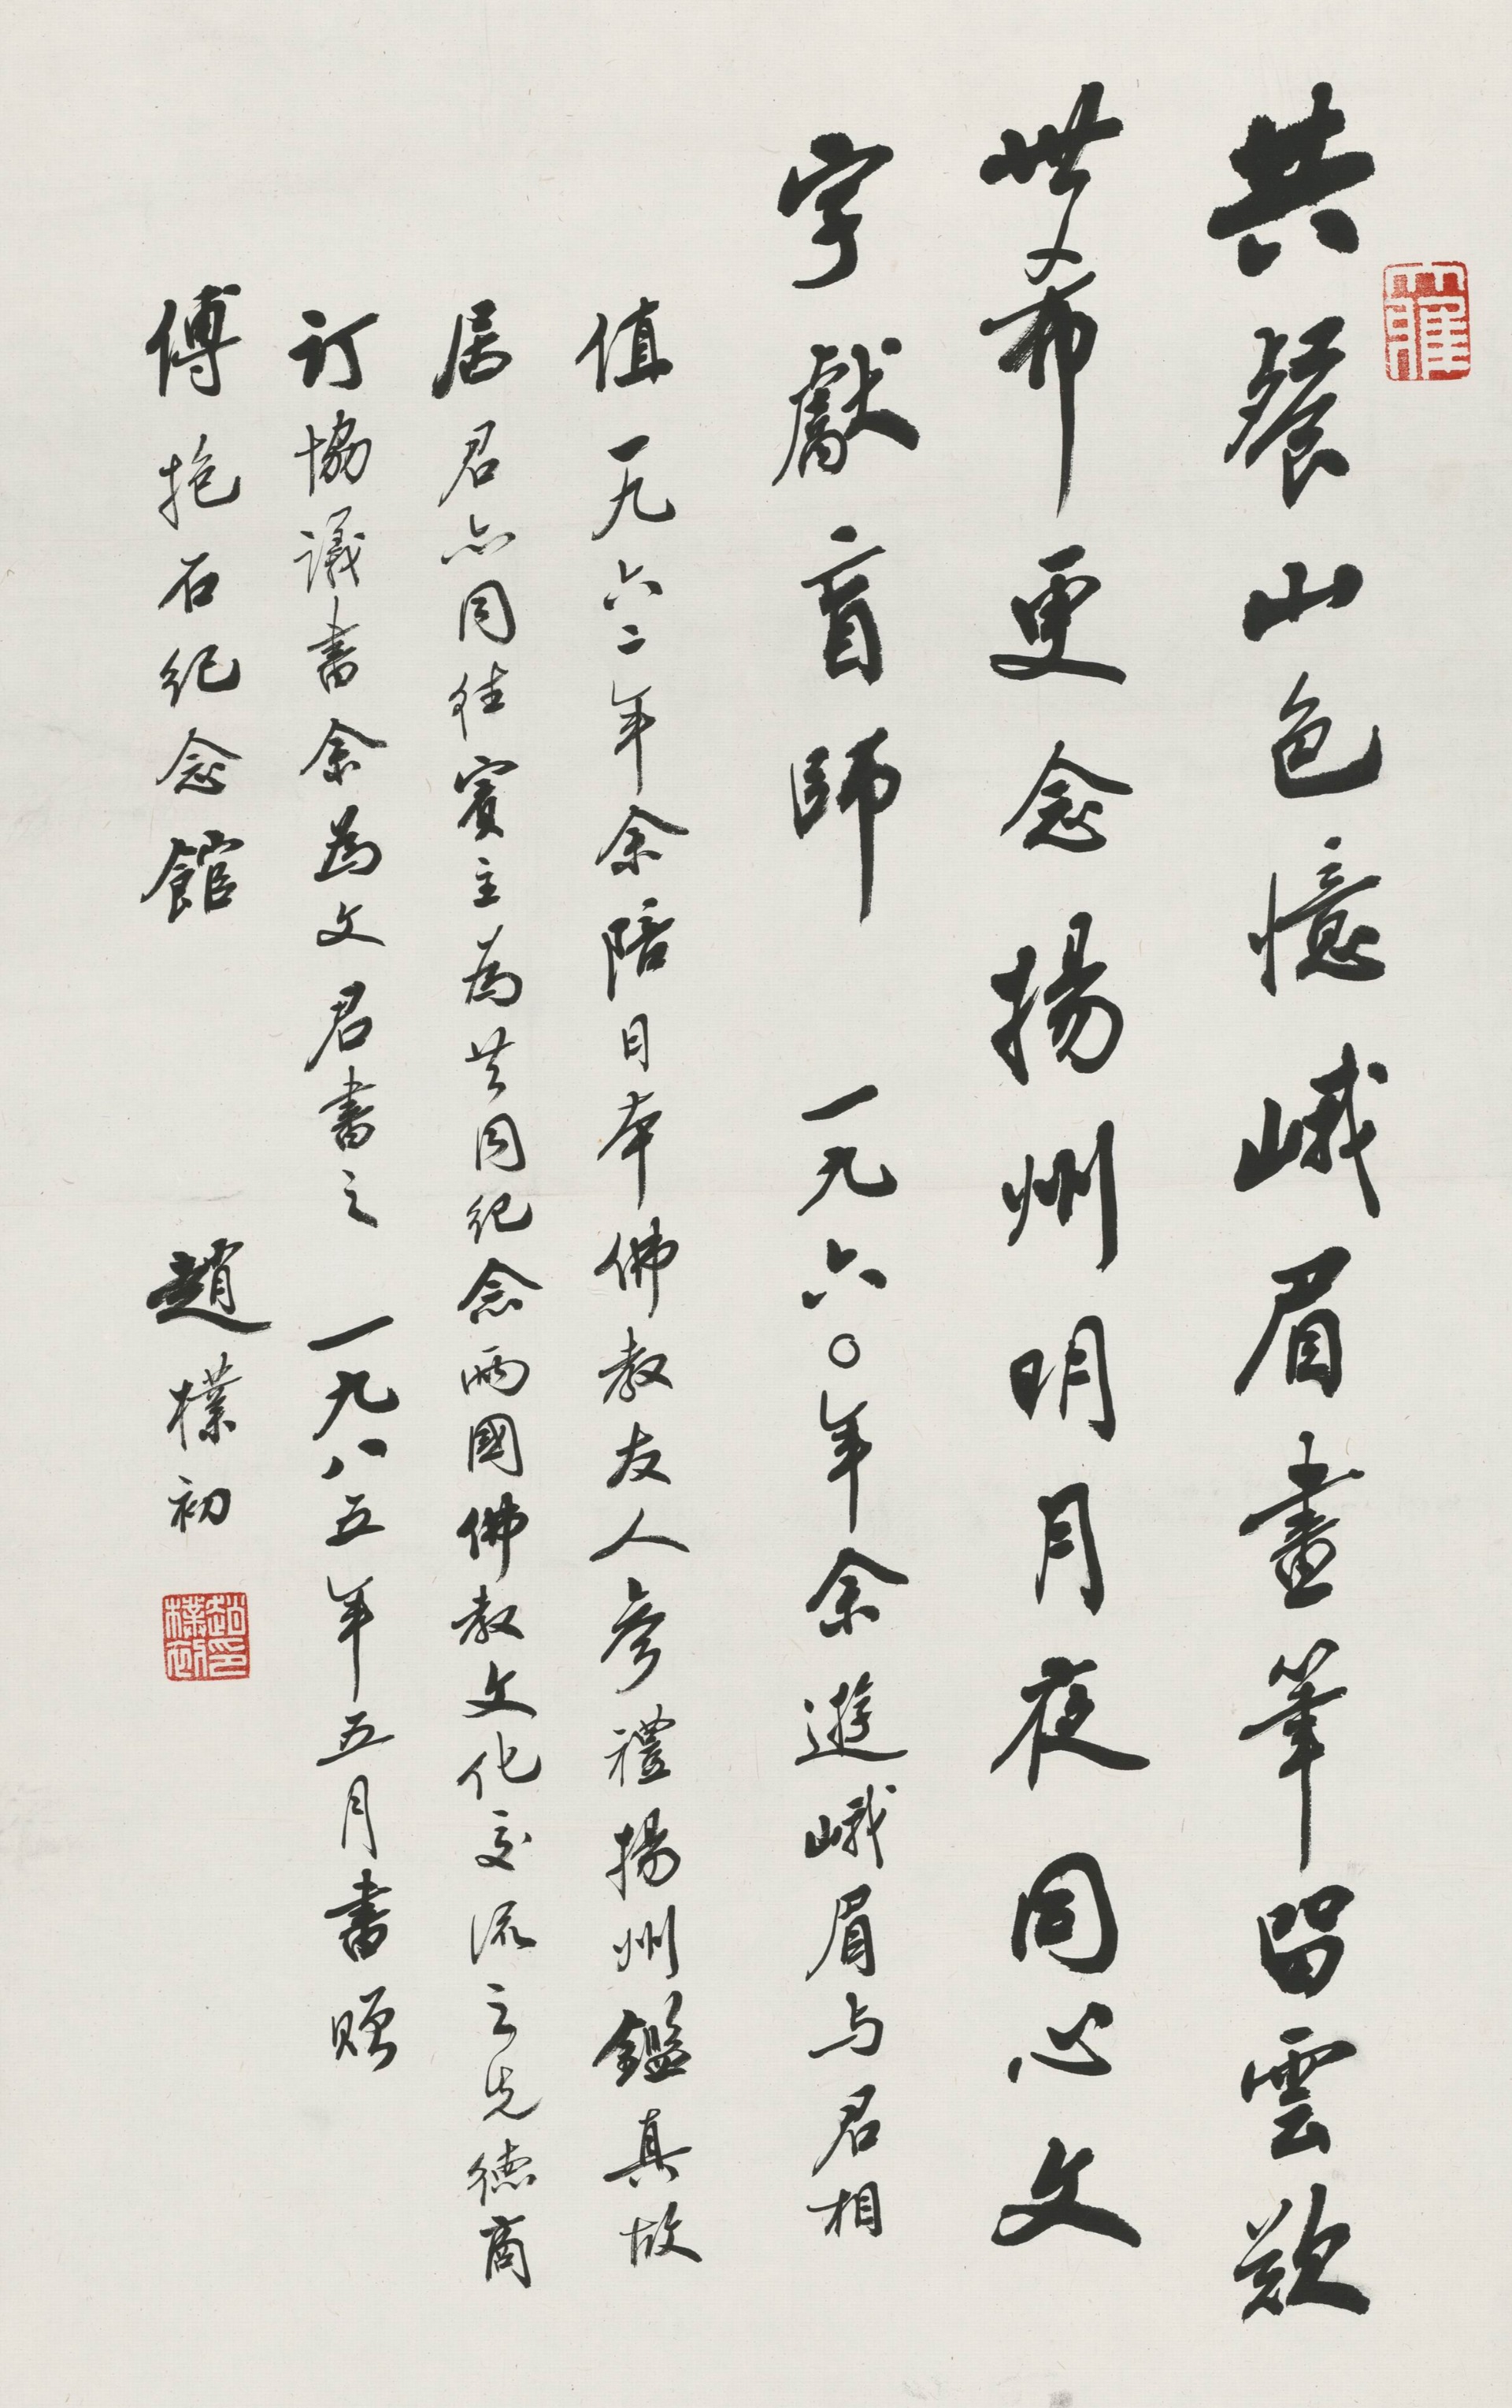 共餐山色憶峨眉畫筆留雲歎
世希更念揚州明月夜同心文
字獻盲師 一九六〇年余遊峨眉与君相
值一九六二年余陪日本佛教友人參禮揚州鑑真故
居君亦同往賓主為共同纪念兩國佛教文化交流之先德商
订協議書余為文君書之 一九八五年五月書贈
傅抱石纪念館 趙樸初
趙樸初印